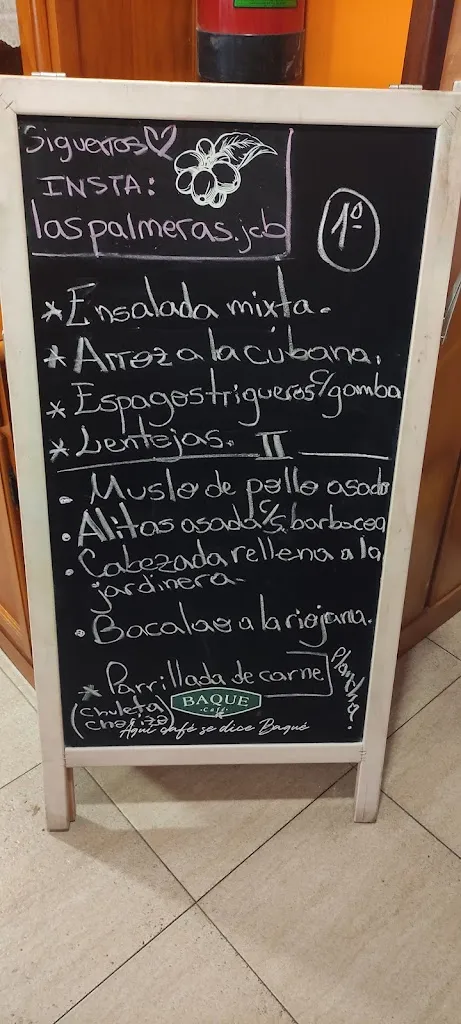 Sigueros♡
INSTA:
laspalmeras.jcb
1º
*Ensalada mixta.
*Arroz a la cubana.
*Espagos trigueros c/gamba
*Lentejas.
II
• Muslo de pollo asado
• Alitas asada c/s. barbacoa
• Cabezada rellena a la
jardinera.
• Bacalao a la riojana.
* Parrillada de carne
Plancha!
(chuleta
chorizo)
BAQUE
•Café•
Aquí café se dice Baqué